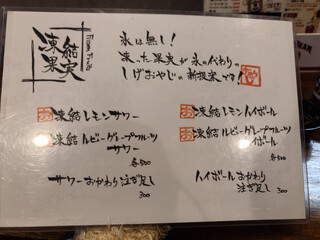 凍結果実
Frozen Fruits
氷は無し！
凍った果実が氷の代わりの
しげおやじの新提案です！
お 凍結レモンサワー
お 凍結ルビーグレープフルーツ
サワー
各500
サワーおかわり注ぎ足し
300
お 凍結レモンハイボール
お 凍結ルビーグレープフルーツ
ハイボール
各500
ハイボールおかわり
注ぎ足し
300